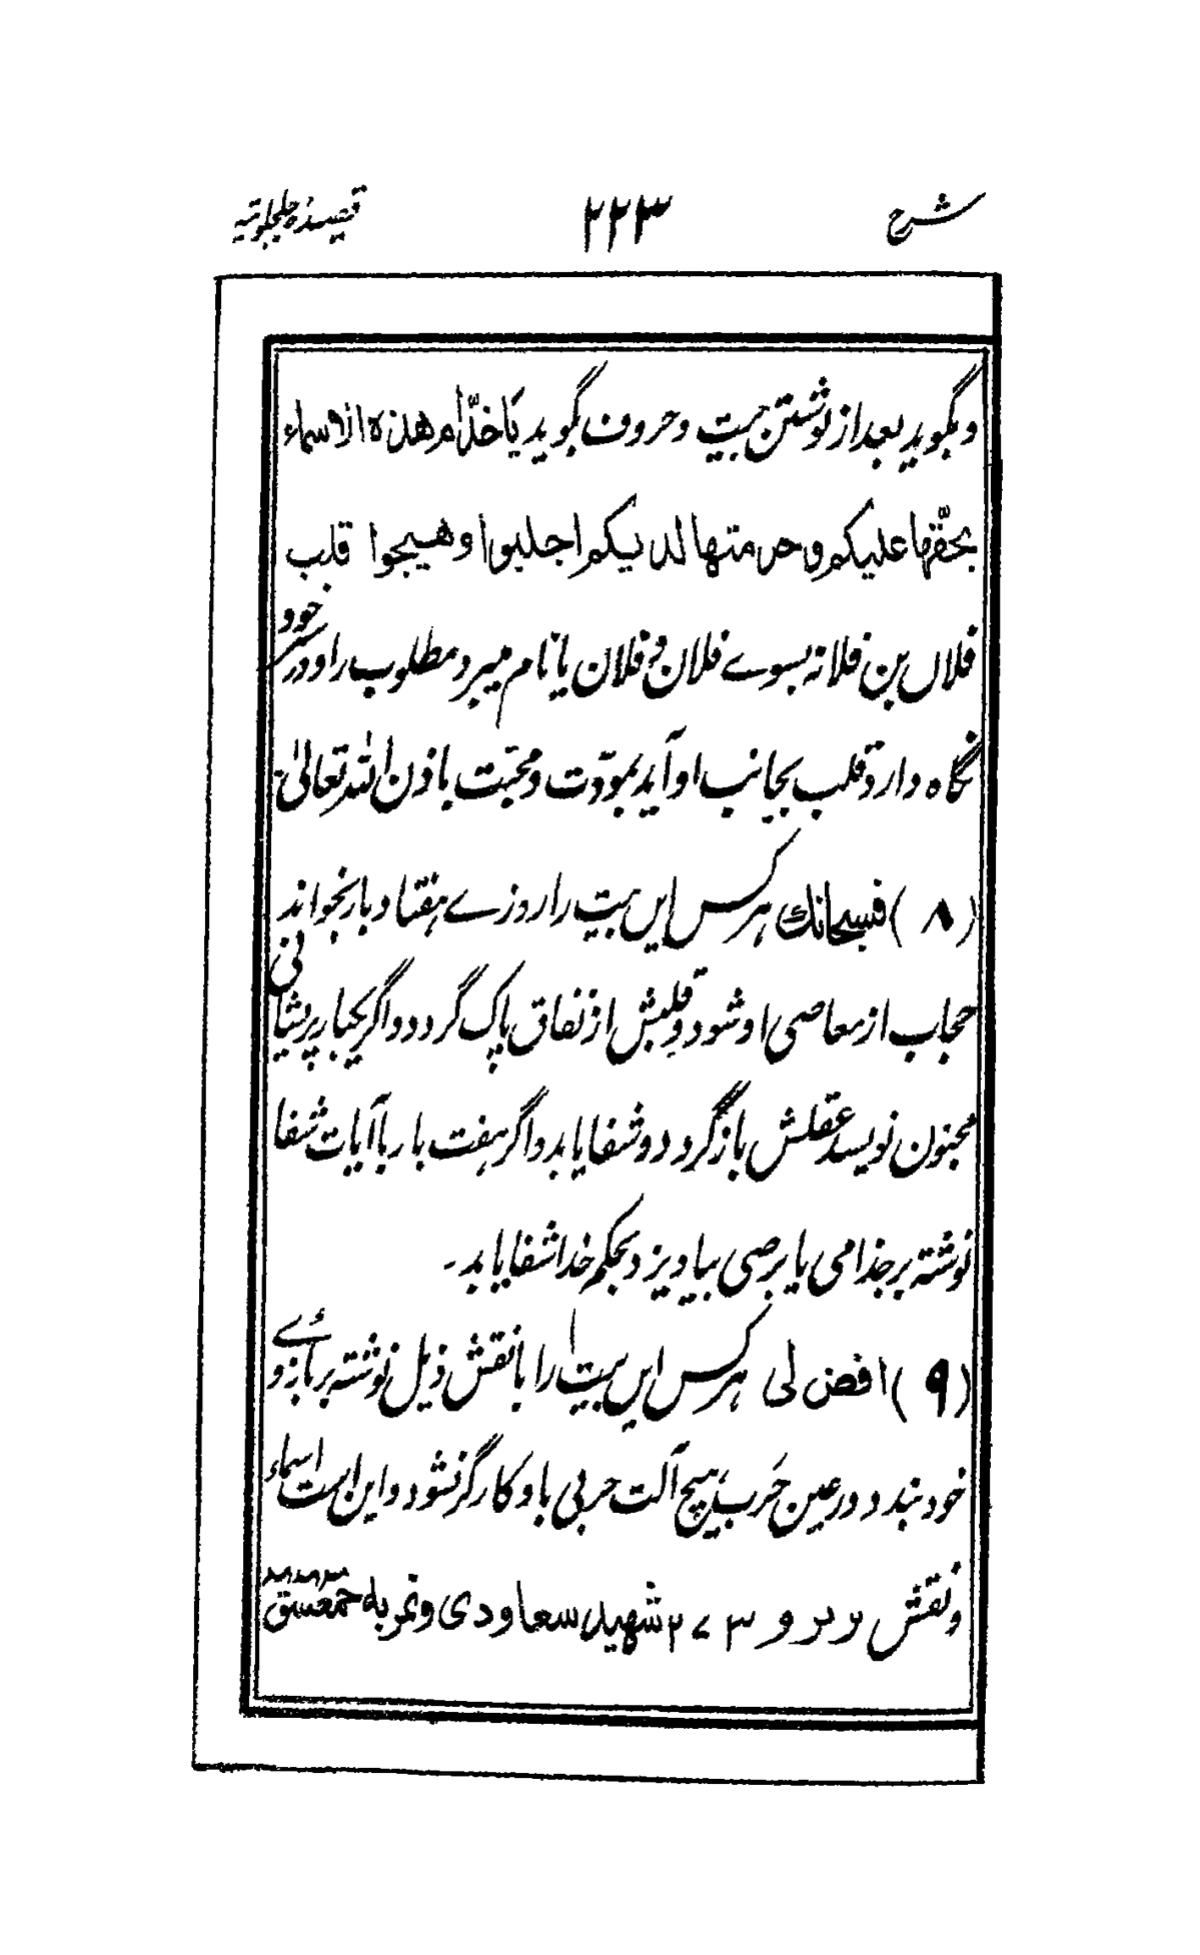 شرح ٢٢٣ قصیدۂ جلجلوتیہ
و بگوید بعد از نوشتن بیت و حروف بگوید یَا خدَّام هذه الاسماء
بحقّها علیکم و حرمتها لدیکم اجلبوا و هیجوا قلب
فلاں بن فلانہ بسوے فلان و فلان یا نام میبرد مطلوب را و در خود
نگاہ دارد قلب بجانب او آید بمودّت و محبّت باذن اللہ تعالیٰ
(٨) فسبحانك هر کس ایں بیت را روزے ہفتاد بار بخواند
حجاب از معاصی او شود و قلبش از نفاق پاک گردد و اگر یکبار بر پیشانی
مجنون نویسد عقلش باز گردد و شفا یابد و اگر ہفت بار با آیات شفا
نوشتہ بر جذامی یا برصی بیاویزد بحکم خدا شفا یابد۔
(٩) افض لی ہر کس ایں بیت را با نقش ذیل نوشتہ بر بازوئے
خود بندد در عین حَرب ہیچ آلت حربی باو کارگر نشود و این است اسماء
و نقش ٢٧٣ شهید سعاودی و نمر به حمعسق